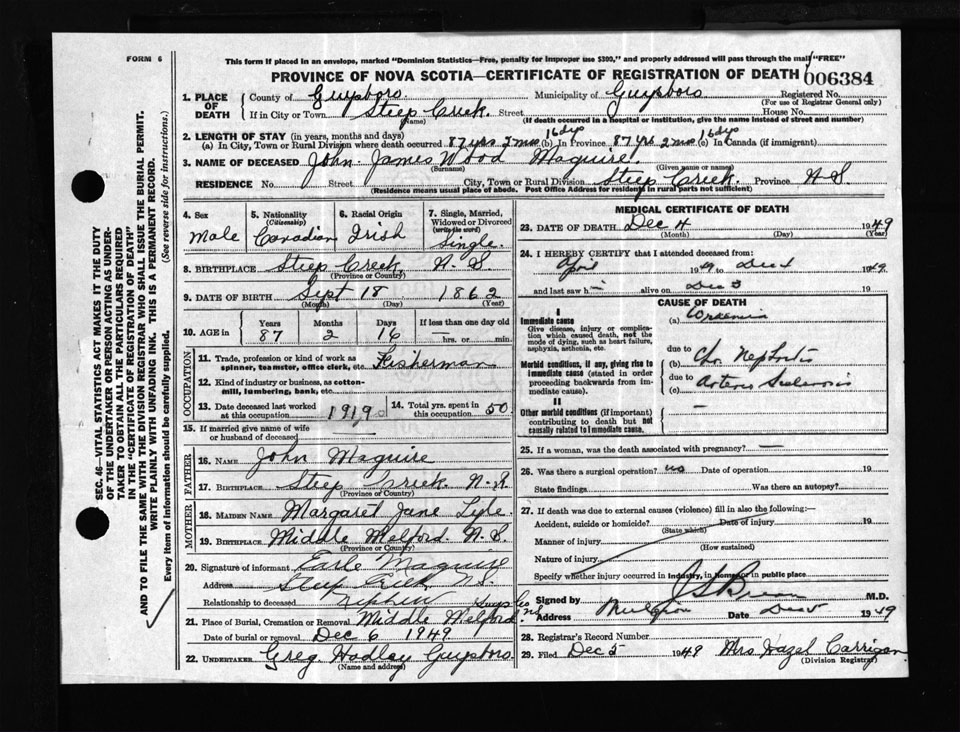 FORM 6
This form if placed in an envelope, marked "Dominion Statistics—Free, penalty for improper use $300," and properly addressed will pass through the mail "FREE"
PROVINCE OF NOVA SCOTIA—CERTIFICATE OF REGISTRATION OF DEATH
006384
1. PLACE OF DEATH
County of Guysboro Municipality of Guysboro Registered No.
(For use of Registrar General only)
If in City or Town Steep Creek Street House No.
(Name) (If death occurred in a hospital or institution, give the name instead of street and number)
2. LENGTH OF STAY (in years, months and days)
(a) In City, Town or Rural Division where death occurred 87 yrs 2 mos 16 dys (b) In Province 87 yrs 2 mos 16 dys (c) In Canada (if immigrant)
3. NAME OF DECEASED John James Wood Maguire
(Surname) (Given name or names)
RESIDENCE No. Street City, Town or Rural Division Steep Creek. Province N S
(Residence means usual place of abode. Post Office Address for residents in rural parts not sufficient)
4. Sex Male
5. Nationality (Citizenship) Canadian
6. Racial Origin Irish
7. Single, Married, Widowed or Divorced (write the word) Single
8. BIRTHPLACE Steep Creek, N. S
(Province or Country)
9. DATE OF BIRTH Sept 18 1862
(Month) (Day) (Year)
10. AGE in Years 87 Months 2 Days 16 If less than one day old
hrs. or min.
OCCUPATION
11. Trade, profession or kind of work as spinner, teamster, office clerk, etc. Fisherman
12. Kind of industry or business, as cotton-mill, lumbering, bank, etc.
13. Date deceased last worked at this occupation 1919
14. Total yrs. spent in this occupation 50
15. If married give name of wife or husband of deceased —
FATHER
16. NAME John Maguire
17. BIRTHPLACE Steep Creek. N. S
(Province or Country)
MOTHER
18. MAIDEN NAME Margaret Jane Lyle
19. BIRTHPLACE Middle Melford N. S.
(Province or Country)
20. Signature of informant Earle Maguire
Address Steep Creek N S.
Relationship to deceased nephew
21. Place of Burial, Cremation or Removal Middle Melford Guys Co N S.
Date of burial or removal Dec 6 1949
22. UNDERTAKER Greg. Hadley Guysboro.
(Name and address)
MEDICAL CERTIFICATE OF DEATH
23. DATE OF DEATH Dec 4 1949
(Month) (Day) (Year)
24. I HEREBY CERTIFY that I attended deceased from:
April 1949 to Dec 4 1949
and last saw h alive on Dec 3 19
CAUSE OF DEATH
I
Immediate cause
Give disease, injury or complication which caused death, not the mode of dying, such as heart failure, asphyxia, asthenia, etc.
(a)
due to
Morbid conditions, if any, giving rise to immediate cause (stated in order proceeding backwards from immediate cause).
(b) Chr Nephritis
due to
(c) Arterio Sclerosis
II
Other morbid conditions (if important) contributing to death but not causally related to immediate cause.
—
25. If a woman, was the death associated with pregnancy? —
26. Was there a surgical operation? no Date of operation 19
State findings Was there an autopsy?
27. If death was due to external causes (violence) fill in also the following:—
Accident, suicide or homicide? Date of injury 19
(State which)
Manner of injury
(How sustained)
Nature of injury
Specify whether injury occurred in industry, in home or in public place
Signed by M.D.
Address Mulgrave Date Dec 5 1949
28. Registrar's Record Number
29. Filed Dec 5 1949 Mrs Hazel Carrigan
(Division Registrar)
SEC. 46—VITAL STATISTICS ACT MAKES IT THE DUTY
OF THE UNDERTAKER OR PERSON ACTING AS UNDER-
TAKER TO OBTAIN ALL THE PARTICULARS REQUIRED
IN THE "CERTIFICATE OF REGISTRATION OF DEATH"
AND TO FILE THE SAME WITH THE DIVISION REGISTRAR WHO SHALL ISSUE THE BURIAL PERMIT.
WRITE PLAINLY WITH UNFADING INK. THIS IS A PERMANENT RECORD.
Every item of information should be carefully supplied. (See reverse side for instructions.)